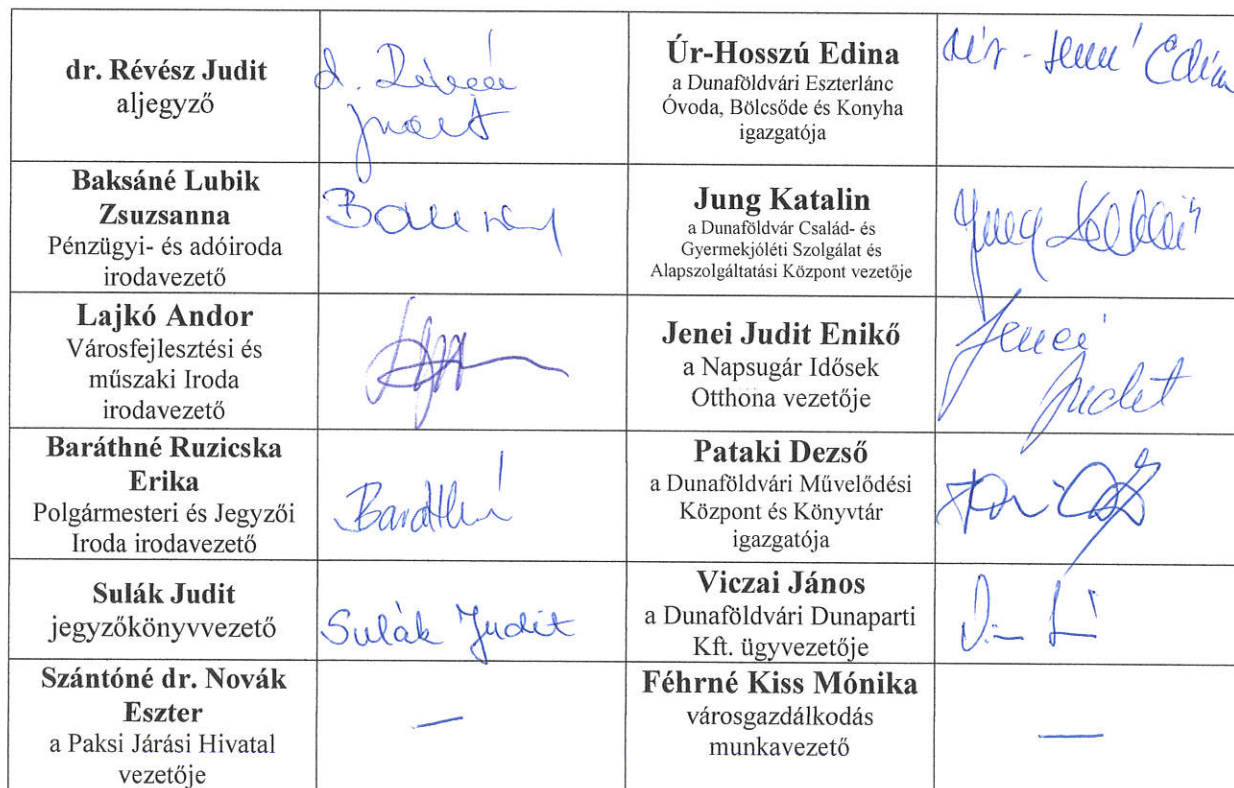 dr. Révész Judit
aljegyző
d. Révész
Judit
Úr-Hosszú Edina
a Dunaföldvári Eszterlánc
Óvoda, Bölcsőde és Konyha
igazgatója
Edina
Baksáné Lubik
Zsuzsanna
Pénzügyi- és adóiroda
irodavezető
Jung Katalin
a Dunaföldvár Család- és
Gyermekjóléti Szolgálat és
Alapszolgáltatási Központ vezetője
Jung Katalin
Lajkó Andor
Városfejlesztési és
műszaki Iroda
irodavezető
Jenei Judit Enikő
a Napsugár Idősek
Otthona vezetője
Jenei
Judit
Baráthné Ruzicska
Erika
Polgármesteri és Jegyzői
Iroda irodavezető
Baráthné
Pataki Dezső
a Dunaföldvári Művelődési
Központ és Könyvtár
igazgatója
Sulák Judit
jegyzőkönyvvezető
Sulák Judit
Viczai János
a Dunaföldvári Dunaparti
Kft. ügyvezetője
Szántóné dr. Novák
Eszter
a Paksi Járási Hivatal
vezetője
—
Féhrné Kiss Mónika
városgazdálkodás
munkavezető
—